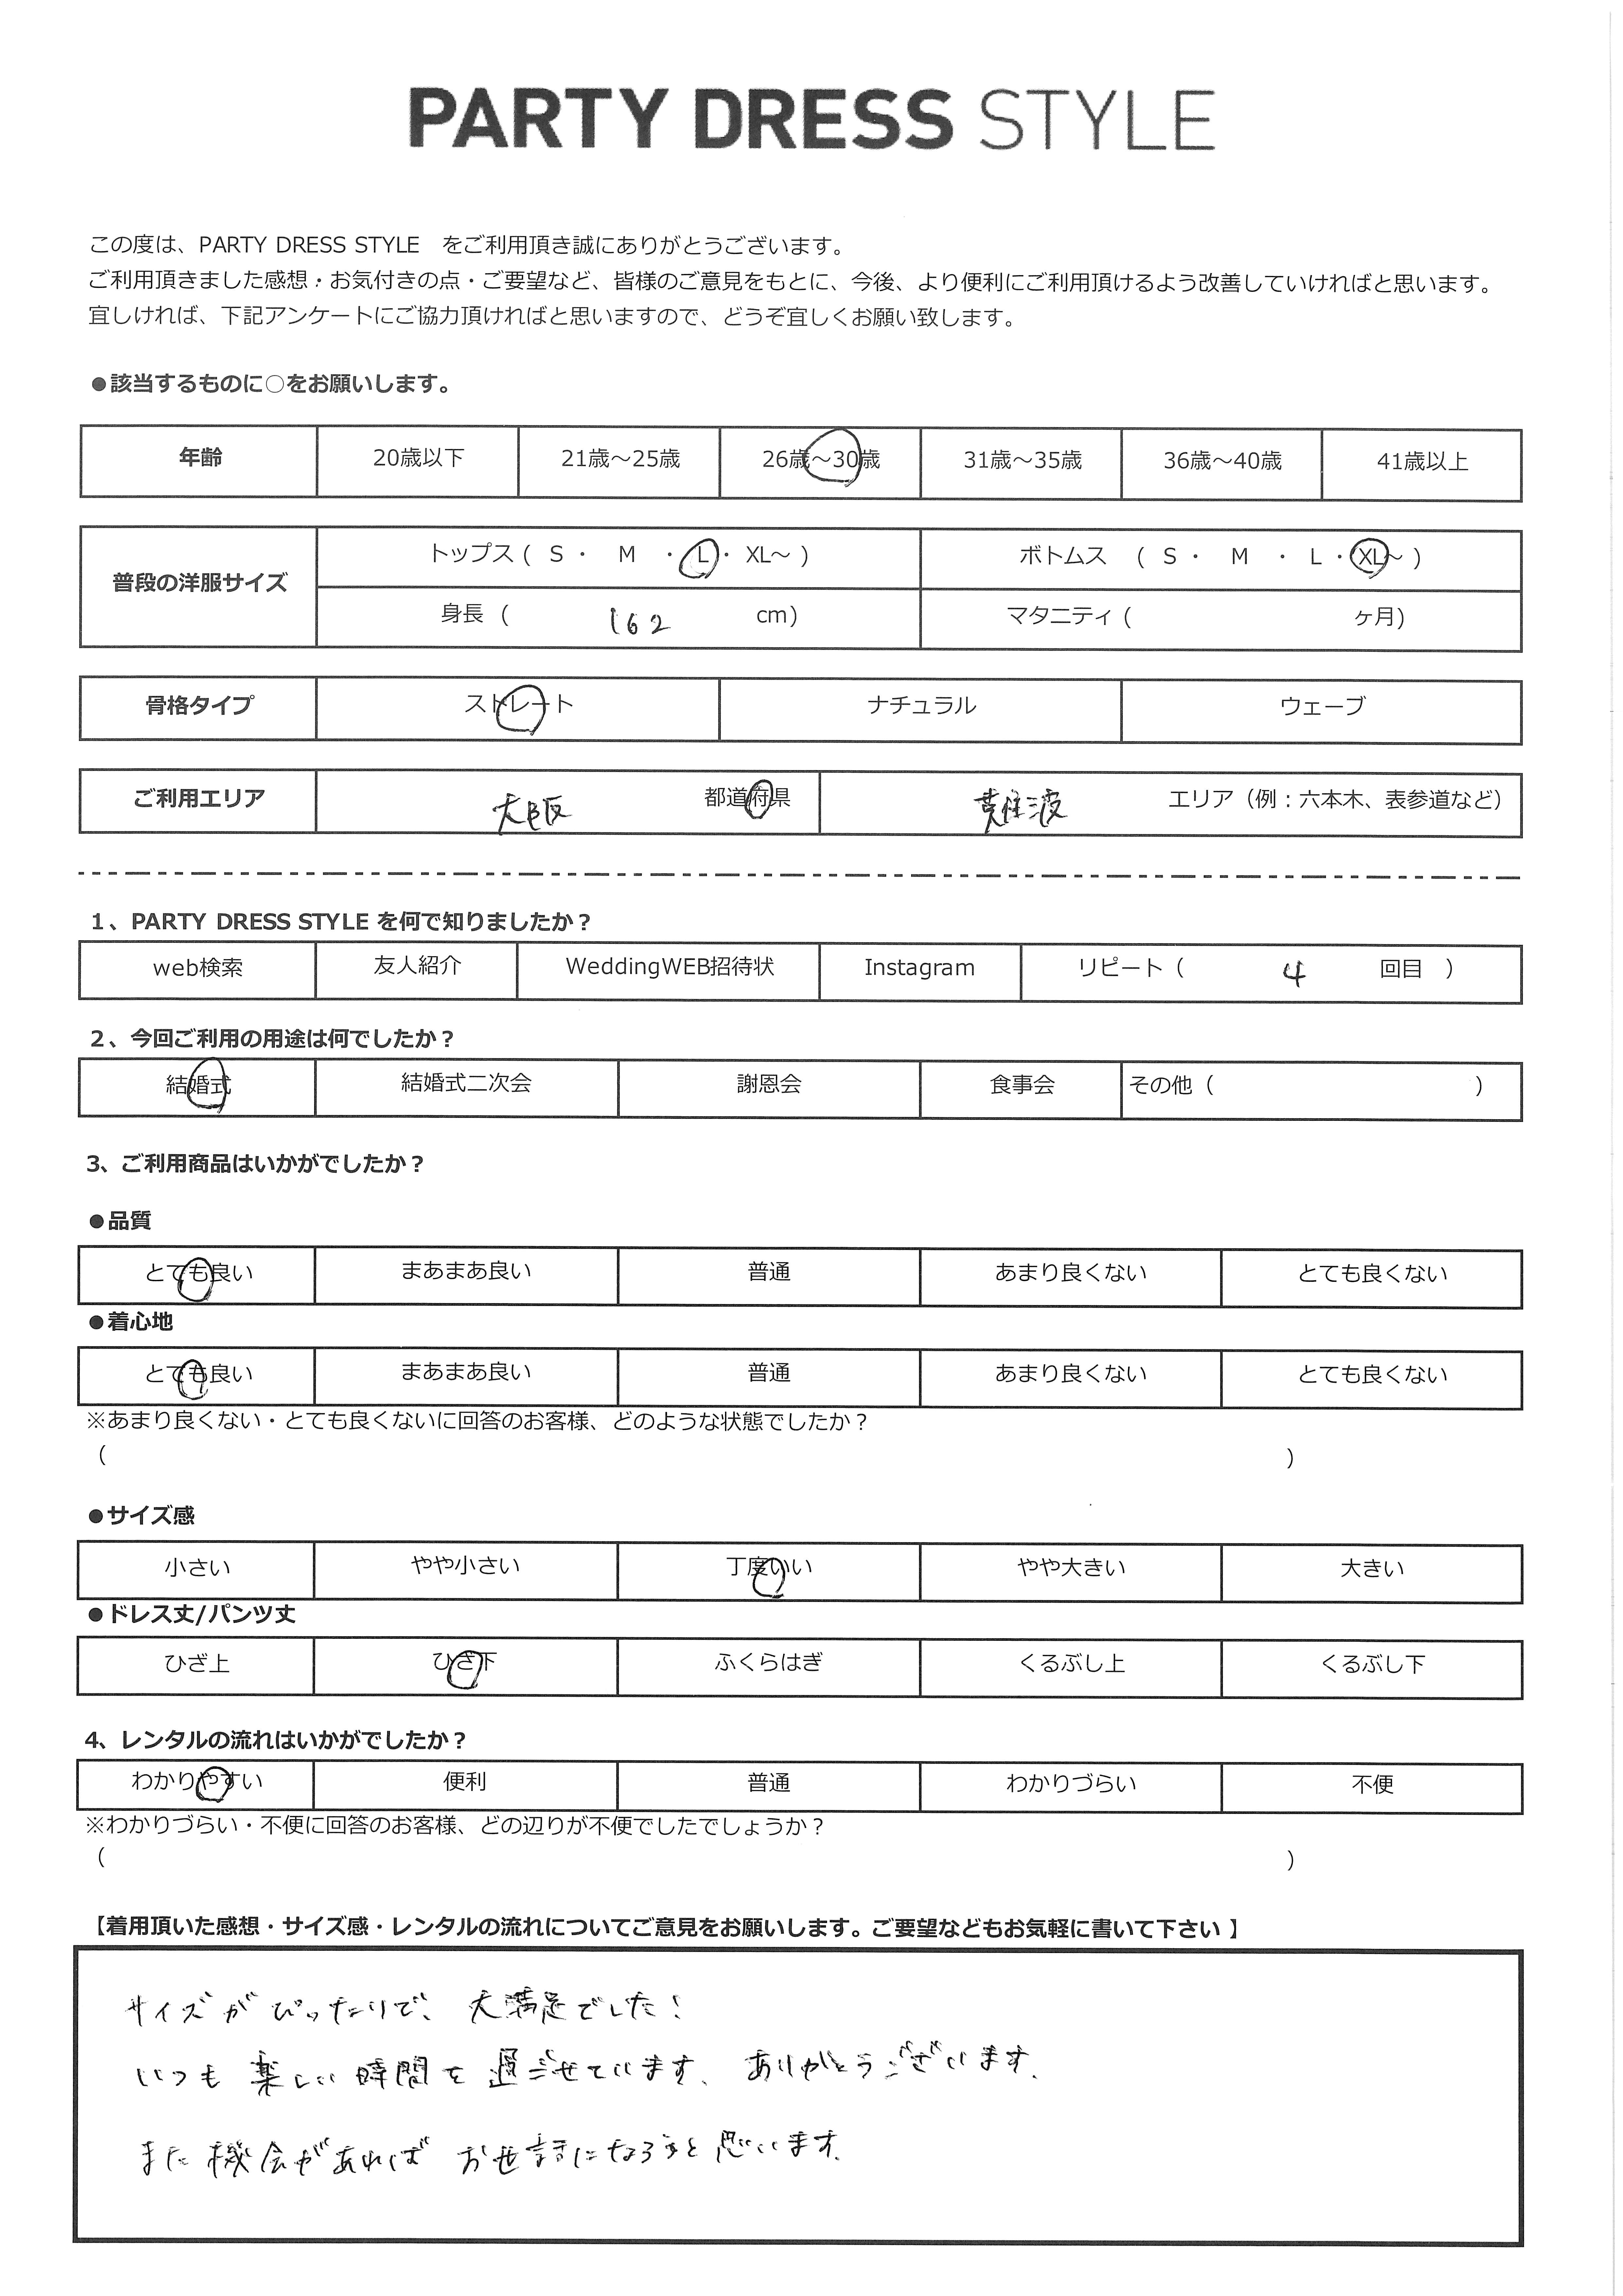 PARTY DRESS STYLE
この度は、PARTY DRESS STYLE をご利用頂き誠にありがとうございます。
ご利用頂きました感想・お気付きの点・ご要望など、皆様のご意見をもとに、今後、より便利にご利用頂けるよう改善していければと思います。
宜しければ、下記アンケートにご協力頂ければと思いますので、どうぞ宜しくお願い致します。
●該当するものに○をお願いします。
年齢 20歳以下 21歳～25歳 26歳～30歳 31歳～35歳 36歳～40歳 41歳以上
普段の洋服サイズ トップス ( S ・ M ・ L ・ XL～ ) ボトムス ( S ・ M ・ L ・ XL～ )
身長 ( 162 cm) マタニティ ( ヶ月)
骨格タイプ ストレート ナチュラル ウェーブ
ご利用エリア 大阪 都道府県 難波 エリア（例：六本木、表参道など）
1、PARTY DRESS STYLE を何で知りましたか？
web検索 友人紹介 WeddingWEB招待状 Instagram リピート（ 4 回目 ）
2、今回ご利用の用途は何でしたか？
結婚式 結婚式二次会 謝恩会 食事会 その他（ ）
3、ご利用商品はいかがでしたか？
●品質
とても良い まあまあ良い 普通 あまり良くない とても良くない
●着心地
とても良い まあまあ良い 普通 あまり良くない とても良くない
※あまり良くない・とても良くないに回答のお客様、どのような状態でしたか？
（ ）
●サイズ感
小さい やや小さい 丁度いい やや大きい 大きい
●ドレス丈/パンツ丈
ひざ上 ひざ下 ふくらはぎ くるぶし上 くるぶし下
4、レンタルの流れはいかがでしたか？
わかりやすい 便利 普通 わかりづらい 不便
※わかりづらい・不便に回答のお客様、どの辺りが不便でしたでしょうか？
（ ）
【着用頂いた感想・サイズ感・レンタルの流れについてご意見をお願いします。ご要望などもお気軽に書いて下さい 】
サイズがぴったりで、大満足でした！
いつも楽しい時間を過ごせています。ありがとうございます。
また機会があればお世話になろうと思います。